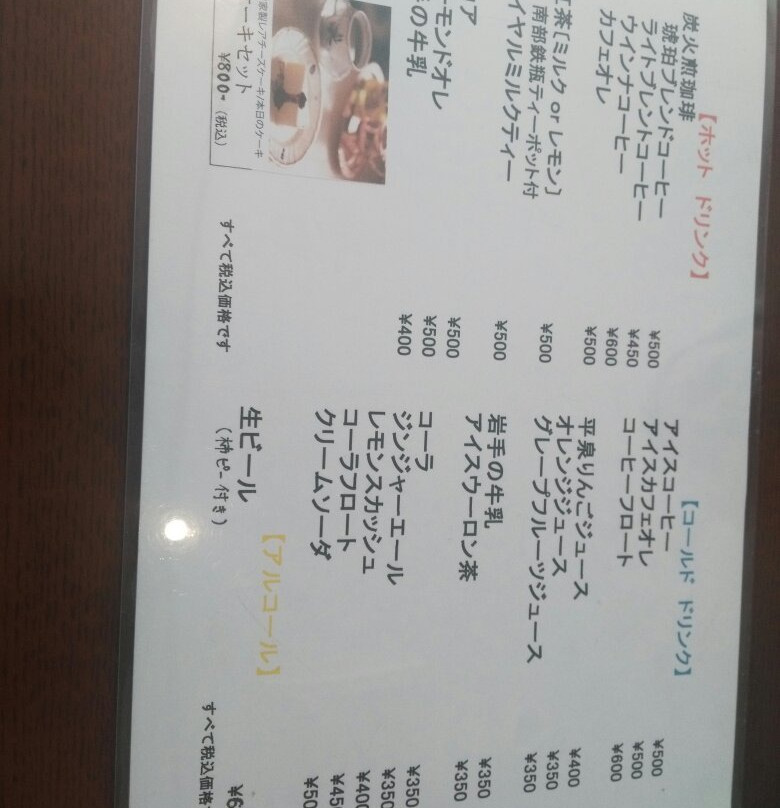 【ホット ドリンク】
炭火煎珈琲
琥珀ブレンドコーヒー ¥500
ライトブレントコーヒー ¥450
ウインナコーヒー ¥600
カフェオレ ¥500
茶［ミルク or レモン］ ¥500
南部鉄瓶ティーポット付
イヤルミルクティー ¥500
ア ¥500
ーモンドオレ ¥500
の牛乳 ¥400
家製レアチーズケーキ/本日のケーキ
ーキセット
¥800-（税込）
すべて税込価格です
【コールド ドリンク】
アイスコーヒー ¥500
アイスカフェオレ ¥500
コーヒーフロート ¥600
平泉りんごジュース ¥400
オレンジジュース ¥350
グレープフルーツジュース ¥350
岩手の牛乳 ¥350
アイスウーロン茶 ¥350
コーラ ¥350
ジンジャーエール ¥350
レモンスカッシュ ¥400
コーラフロート ¥45
クリームソーダ ¥50
【アルコール】
生ビール ¥6
（柿ピー付き）
すべて税込価格